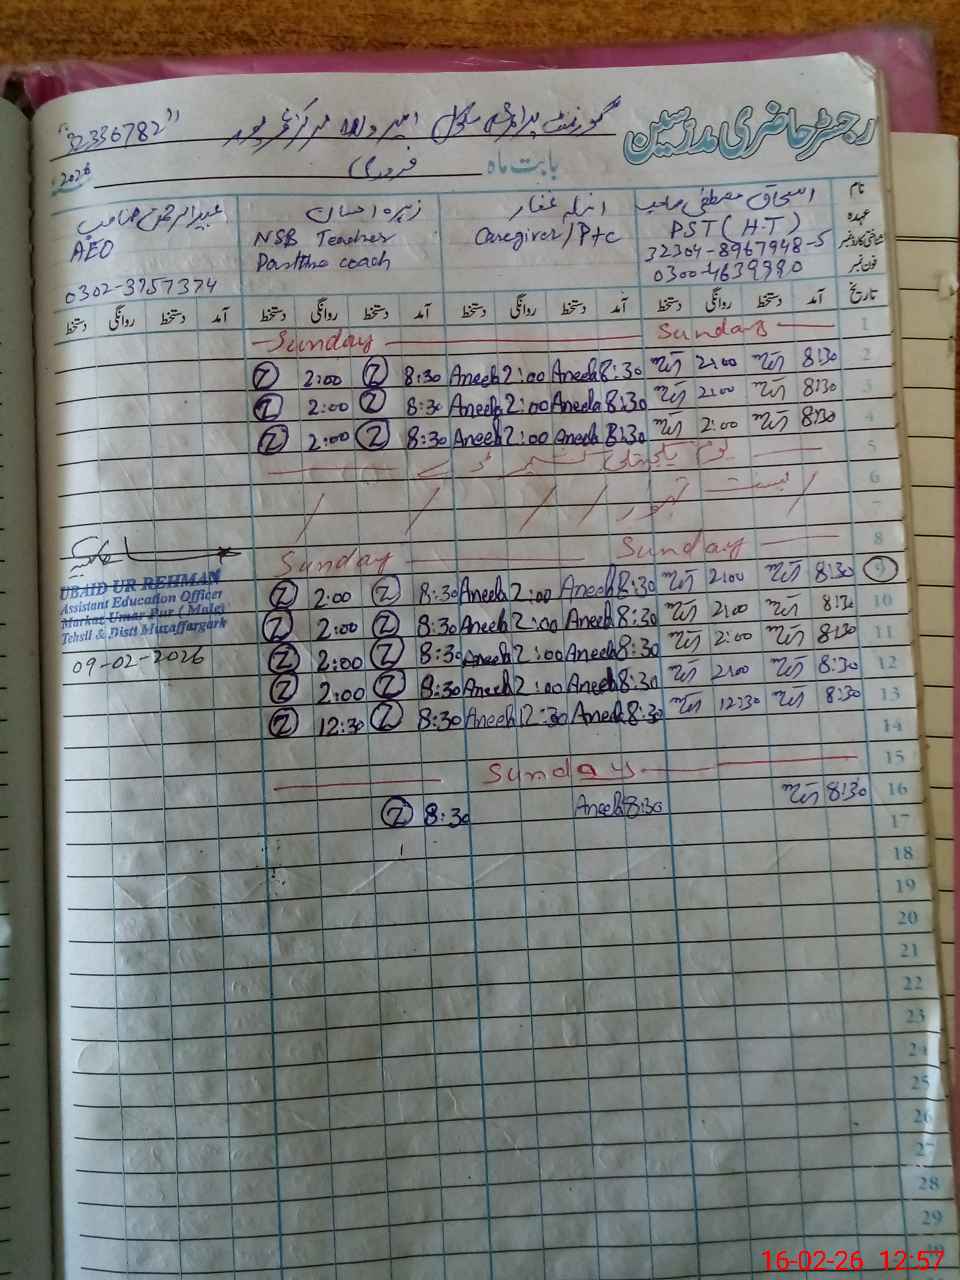 رجسٹر حاضری مدرسین
گورنمنٹ پرائمری سکول امیر والا مرکز عمر پور "32336782"
بابت ماہ فروری 2026
نام اسحاق مصطفی صاحب غفار زنیرہ احسان عبیدالرحمن صاحب
عہدہ PST (H.T) Caregiver/Ptc NSB Teacher AEO
شناختی کارڈ نمبر 32304-8967948-5 coach
فون نمبر 0300-4639980 0302-3757374
تاریخ آمد دستخط روانگی دستخط آمد دستخط روانگی دستخط آمد دستخط روانگی دستخط آمد دستخط روانگی دستخط
1 Sunday Sunday
2 8:30 2:00 8:30 Aneela 2:00 Aneela 8:30 Z 2:00 Z
3 8:30 2:00 8:30 Aneela 2:00 Aneela 8:30 Z 2:00 Z
4 8:30 2:00 8:30 Aneela 2:00 Aneela 8:30 Z 2:00 Z
5 یوم یکجہتی کشمیر ڈے
6 بسنت
7
8 Sunday Sunday
9 8:30 2:00 8:30 Aneela 2:00 Aneela 8:30 Z 2:00 Z
10 8:30 2:00 8:30 Aneela 2:00 Aneela 8:30 Z 2:00 Z
11 8:30 2:00 8:30 Aneela 2:00 Aneela 8:30 Z 2:00 Z
12 8:30 2:00 8:30 Aneela 2:00 Aneela 8:30 Z 2:00 Z
13 8:30 12:30 8:30 Aneela 12:30 Aneela 8:30 Z 12:30 Z
14
15 Sunday
16 8:30 8:30 Aneela 8:30 Z
17
18
19
20
21
22
23
24
25
26
27
28
29
UBAID UR REHMAN
Assistant Education Officer
Markaz Umar Pur (Male)
Tehsil & Distt Muzaffargarh
09-02-2026
16-02-26 12:57